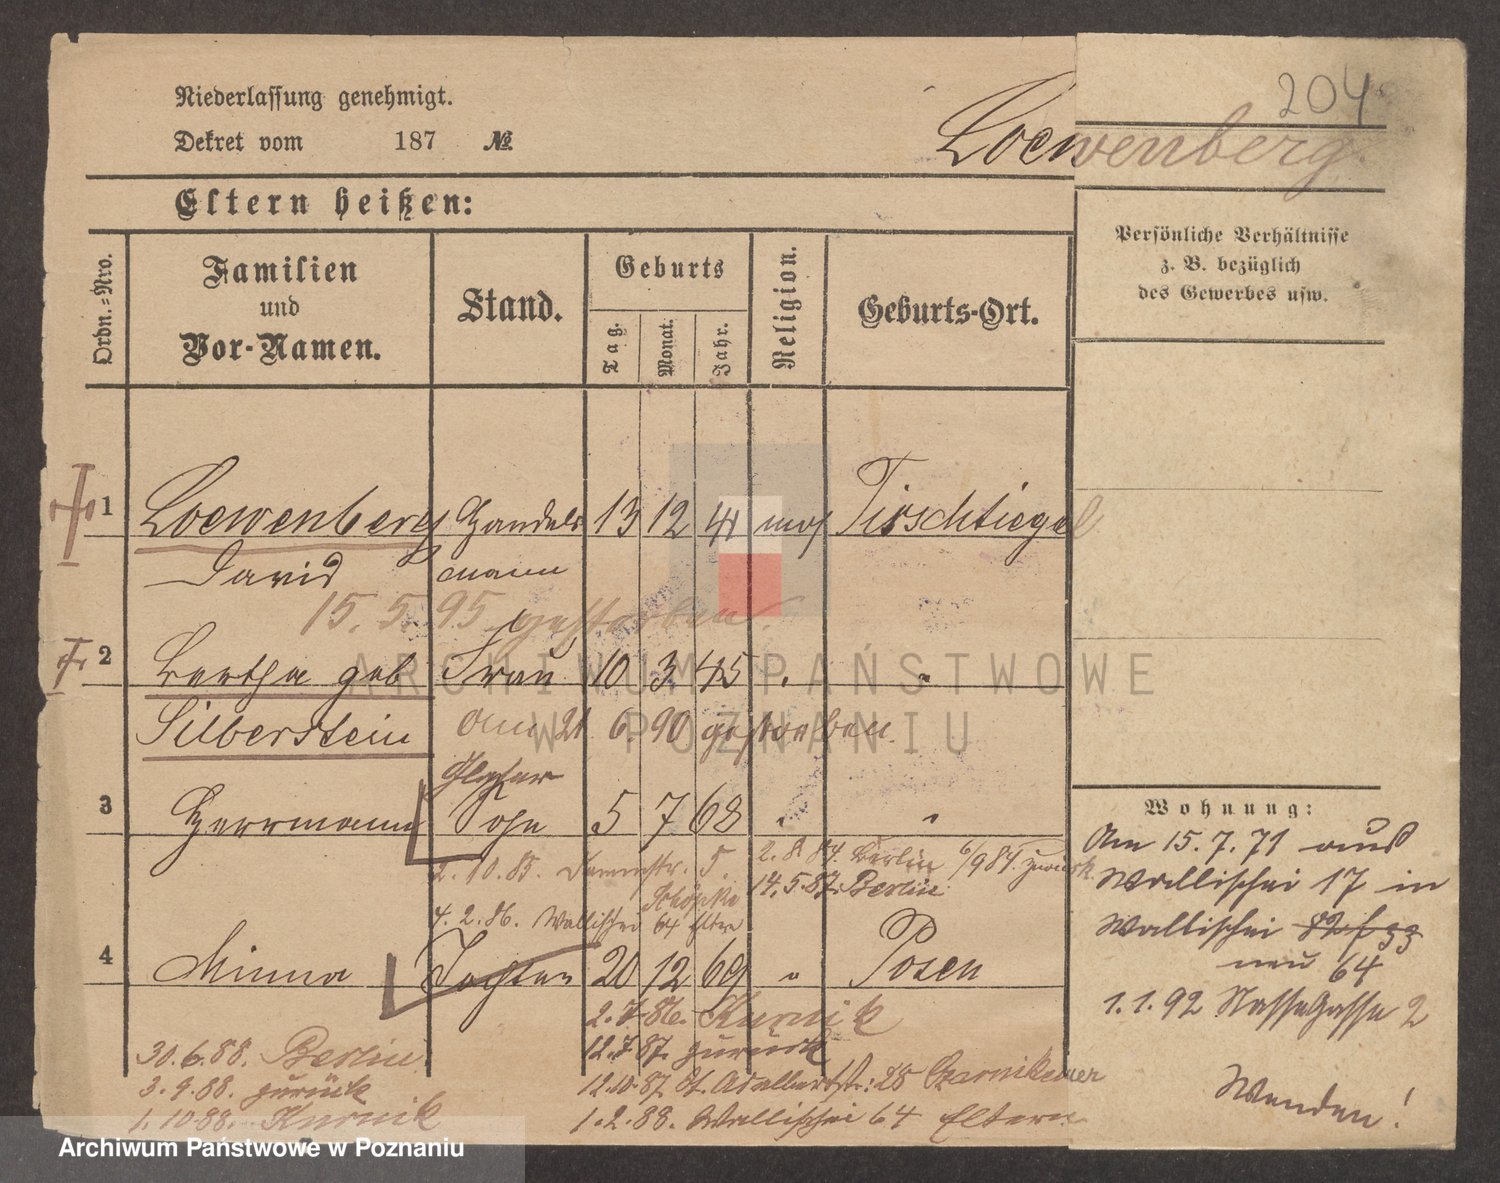 204
Niederlassung genehmigt.
Dekret vom 187 №
Loewenberg
Eltern heißen:
Persönliche Verhältnisse
z. B. bezüglich
des Gewerbes usw.
Ordn.-Nro.
Familien
und
Vor-Namen.
Stand.
Geburts
Tag.
Monat.
Jahr.
Religion.
Geburts-Ort.
1 Loewenberg Handels 13 12 41 mos Tirschtiegel
David mann
15. 5. 95 gestorben
2 Bertha geb Frau 10 3 45 " "
Silberstein am 21 6. 90 gestorben
3 Herrmann Sohn 5 7 68 " "
2. 8. 84. Berlin 6/9 84. zurück
2. 10. 85. 5.
14. 5. 87. Berlin
4. 2. 86. Wallischei 64 Eltern
4 Minna Tochter 20 12 69 " Posen
2. 7. 86. Kurnik
30. 6. 88. Berlin
12. 7. 87. zurück
3. 9. 88. zurück
12. 10. 87. St. Adalbertstr. 28
1. 10 88. Kurnik
1. 2. 88. Wallischei 64 Eltern
Wohnung:
Am 15. 7. 71 aus
Wallischei 17 in
Wallischei
neu 64
1. 1. 92 Nasse Gasse 2
Wenden!
ARCHIWUM PAŃSTWOWE
W POZNANIU
Archiwum Państwowe w Poznaniu